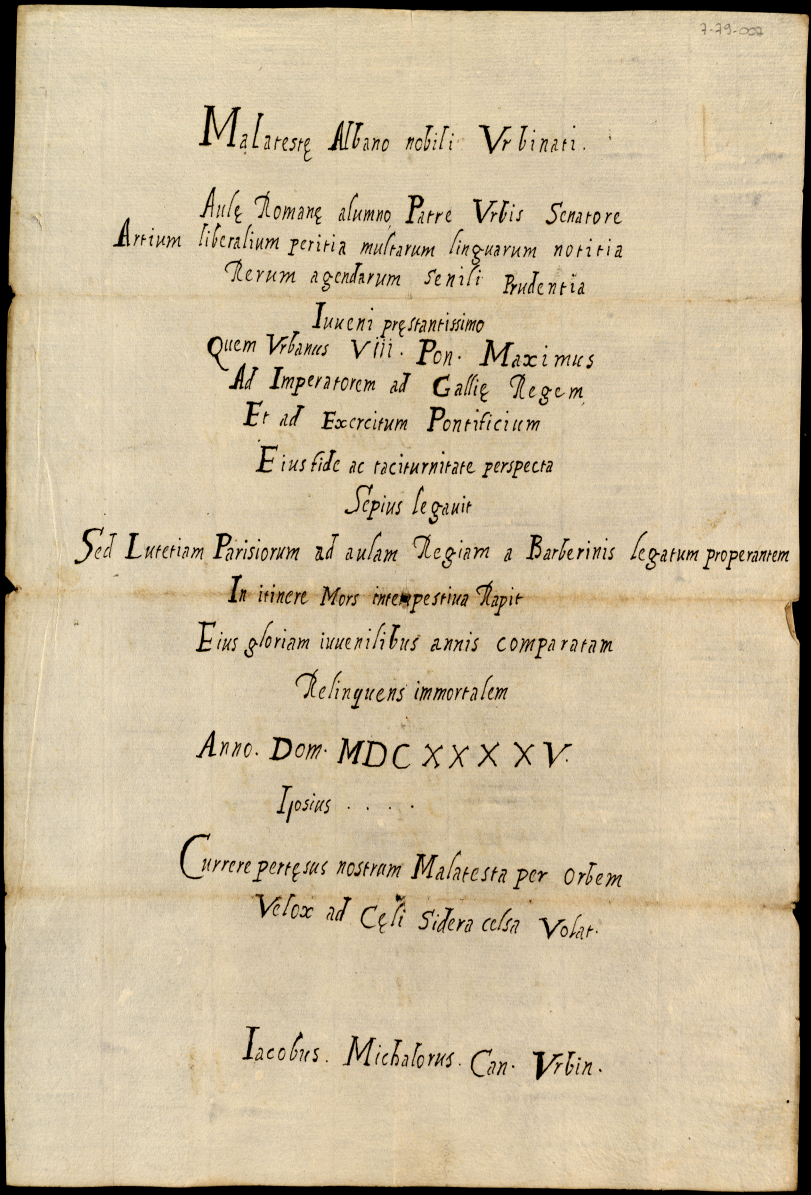 7-79-007
Malatestę Albano nobili Vrbinati.
Aulę Romanę alumno Patre Vrbis Senatore
Artium liberalium peritia multarum linguarum notitia
Rerum agendarum senili Prudentia
Iuueni pręstantissimo
Quem Vrbanus VIII. Pon. Maximus
Ad Imperatorem ad Gallię Regem
Et ad Exercitum Pontificium
Eius fide ac taciturnitate perspecta
Sepius legauit
Sed Lutetiam Parisiorum ad aulam Regiam a Barberinis legatum properantem
In itinere Mors intempestiua Rapit
Eius gloriam iuuenilibus annis comparatam
Relinquens immortalem
Anno. Dom. MDCXXXXV.
Ipsius . . . .
Currere pertęsus nostrum Malatesta per orbem
Velox ad Cęli Sidera celsa Volat.
Iacobus. Michalorus. Can. Vrbin.